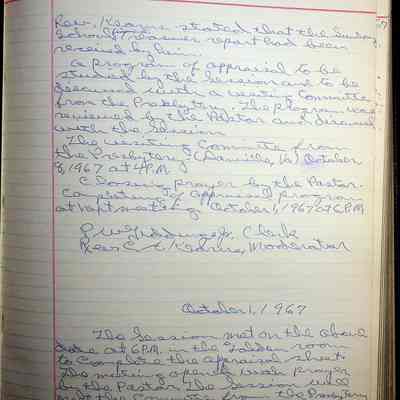 Rev. Kearns stated that the Sunday
School Treasurer report had been
received by him.
A program of appraisal to be
studied by the Session and to be
discussed with a visiting Committee
from the Presbytery. The program was
reviewed by the Pastor and discussed
with the Session
The visiting Committee from
the Presbytery (Danville, Va) October
8, 1967 at 4 P.M.
Closing prayer by the Pastor.
Completing of appraisal program
at next meeting October 1, 1967 at 6 P.M.
Jr. Clerk
Rev. Kearns, Moderator
October 1, 1967
The Session met on the above
date at 6 P.M. in the room
to complete the appraisal sheet.
The meeting opened with prayer
by the Pastor. The Session will
meet the Committee from the Presbytery